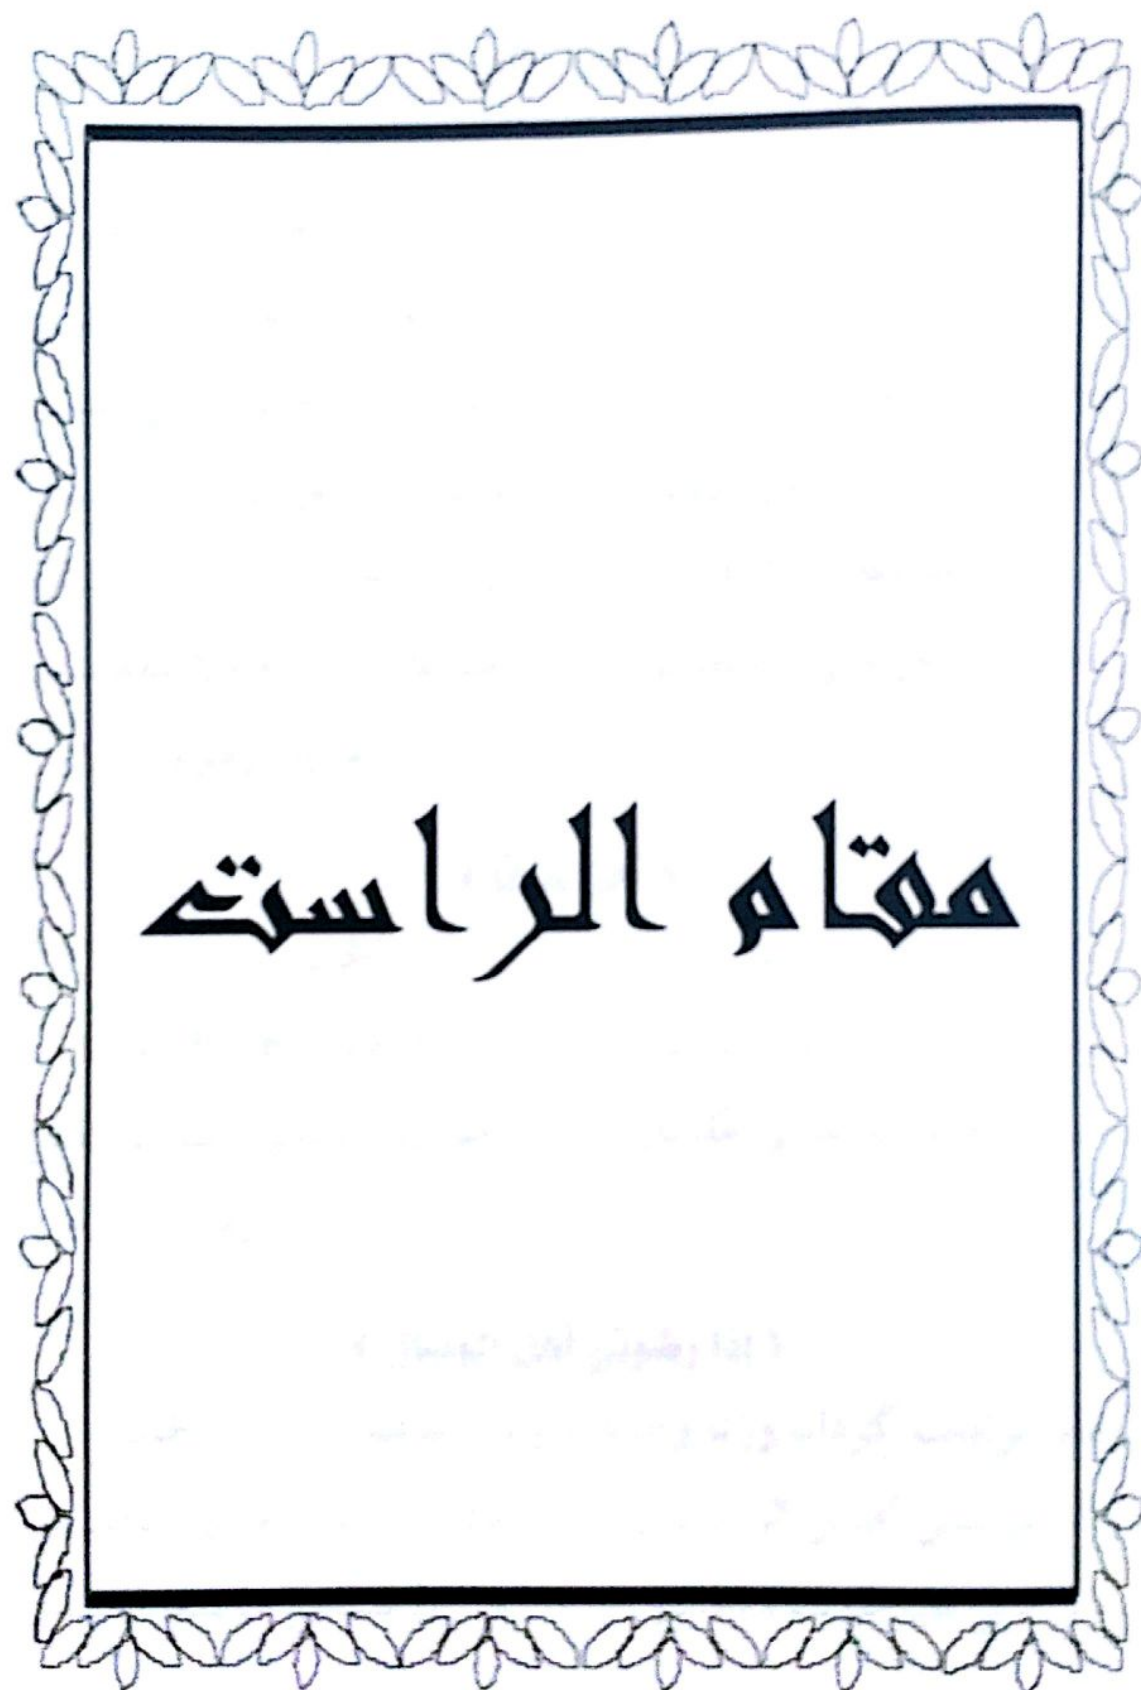 مقام الراست